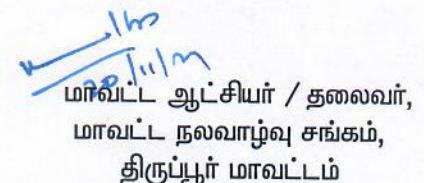 மாவட்ட ஆட்சியர் / தலைவர்,
மாவட்ட நலவாழ்வு சங்கம்,
திருப்பூர் மாவட்டம்